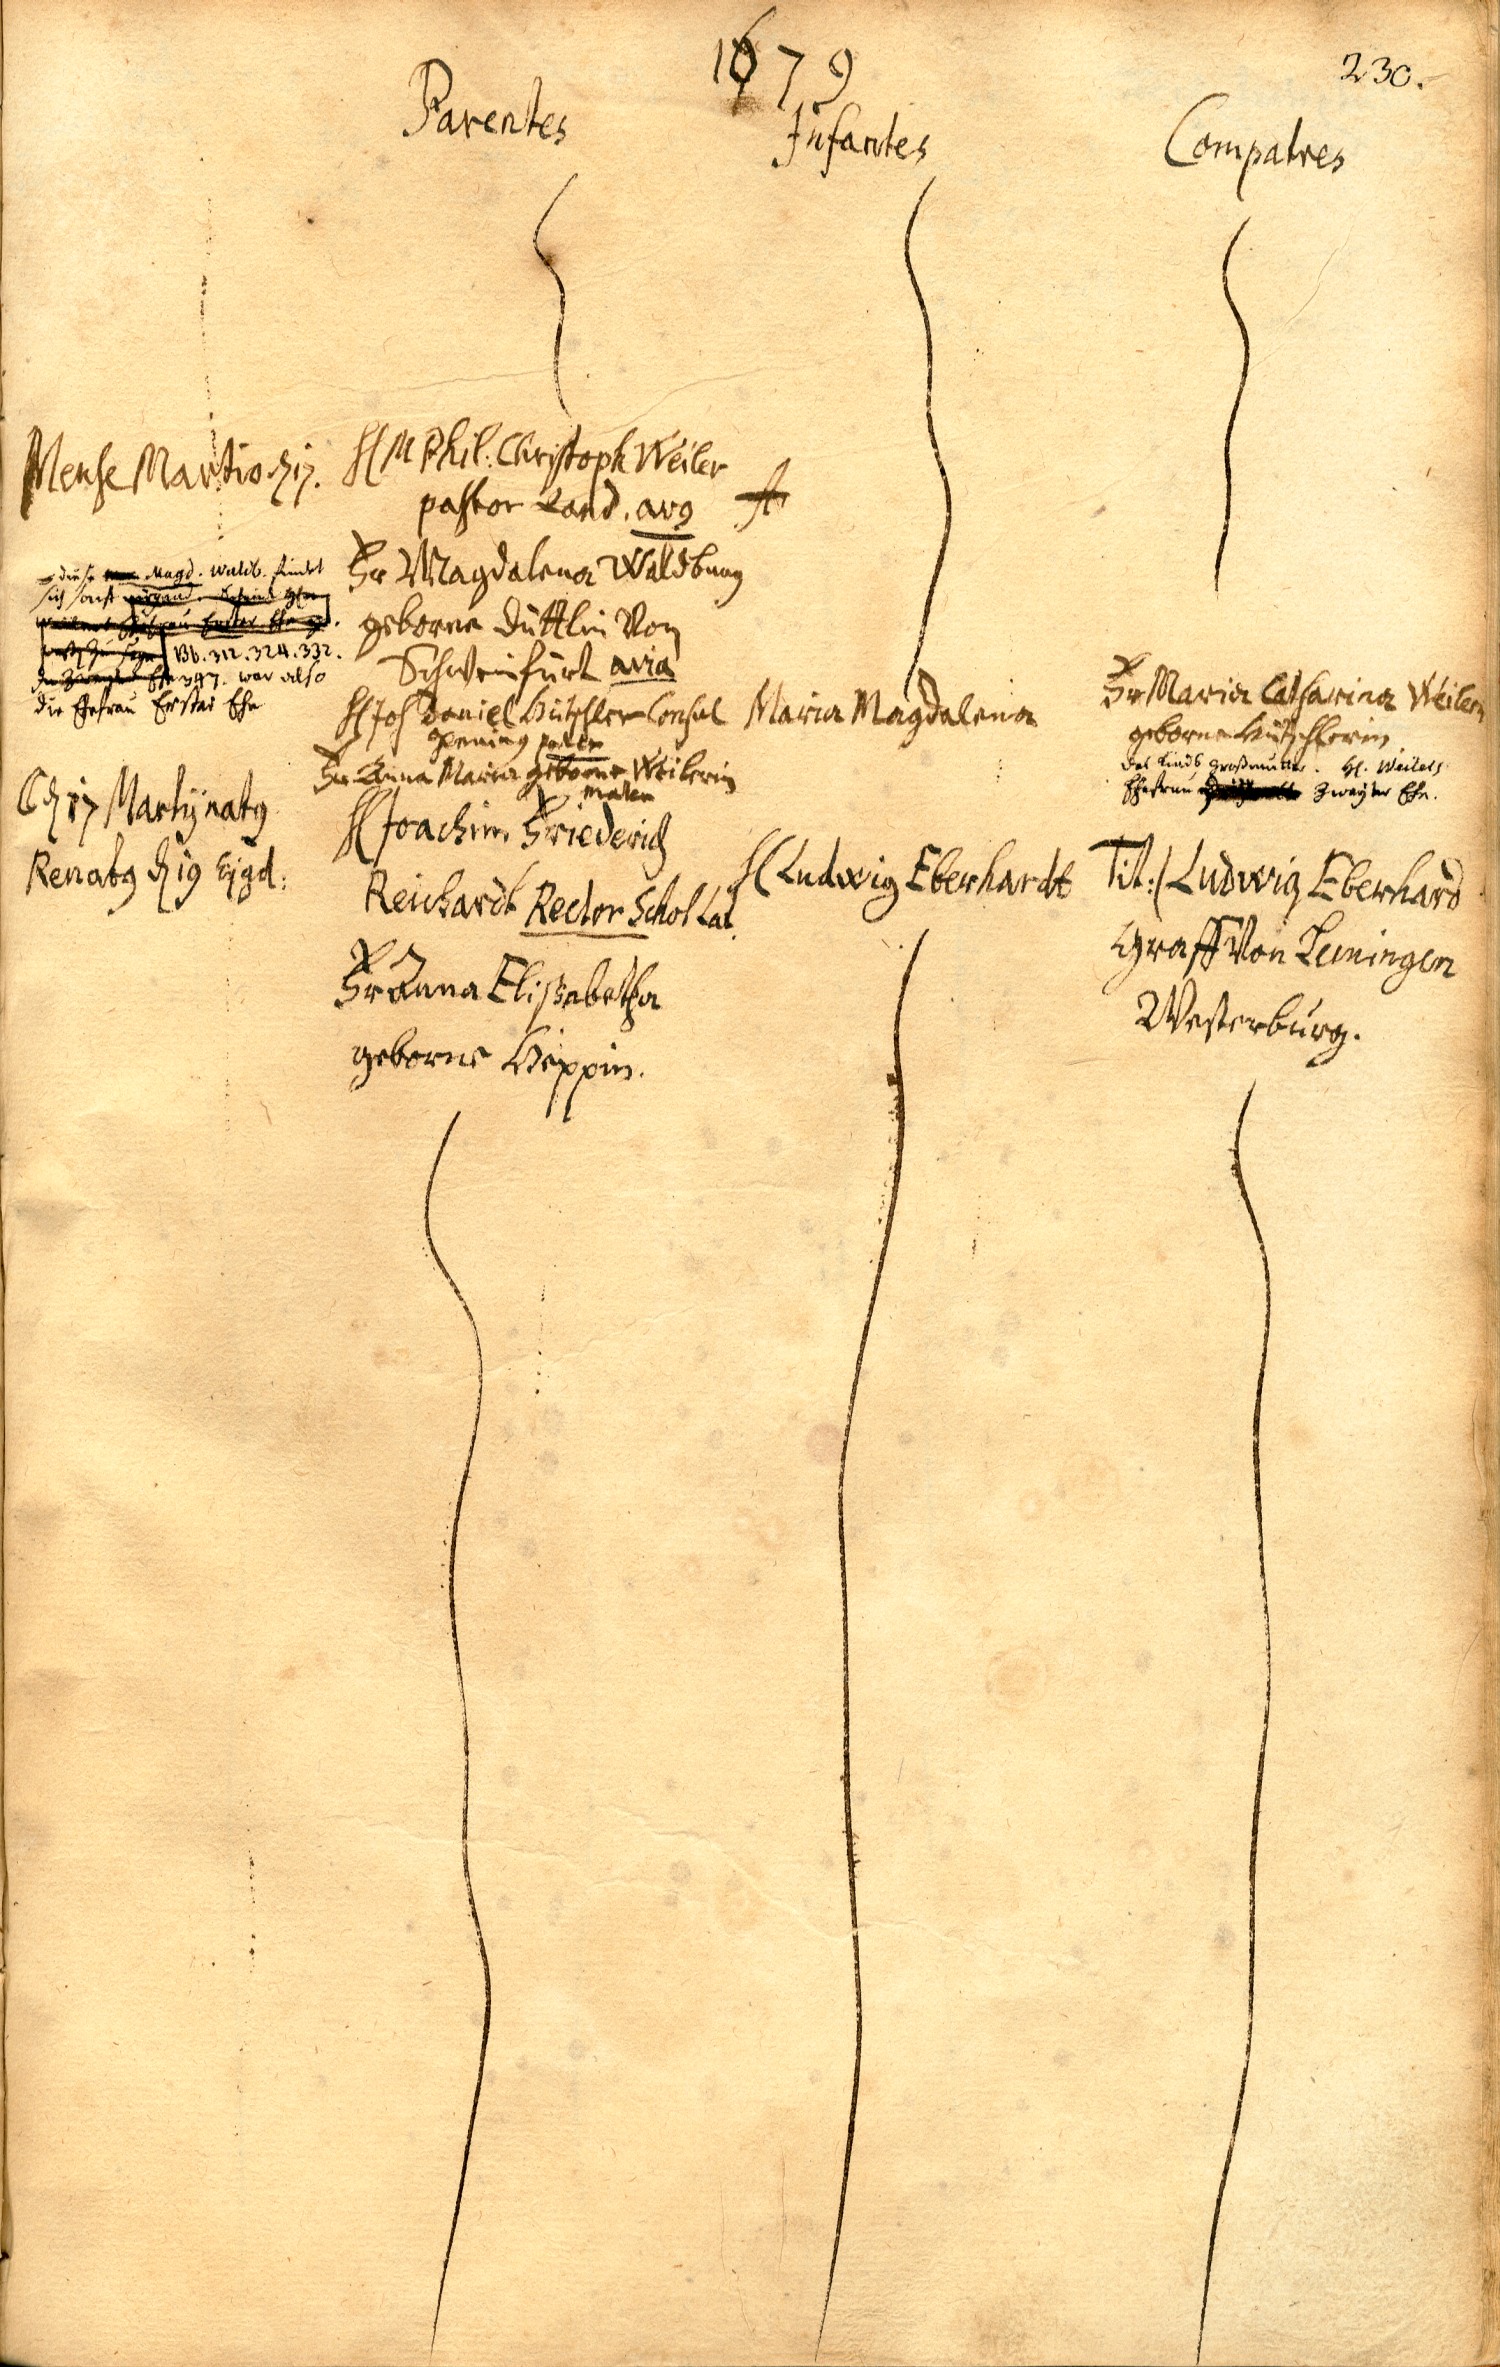 1679
230.
Parentes
Infantes
Compatres
Mense Martio d 17.
H M Phil. Christoph Weiler
pastor Land. avg
Fr Magdalena Waldburg
geborne Düttlin Von
Schweinfurt avia
H Joh Daniel Hütschler Consul
pater
Fr Anna Maria geborne Weilerin
mater
Maria Magdalena
Fr Maria Catharina Weilerin
geborne Hütschlerin
des Kinds Großmutter. H. Weilers
Ehefrau Zweyter Ehe.
diese Magd. Waldb. findet
sich sonst
Bb. 312. 324. 332.
Ehe 347. war also
die Ehefrau Erster Ehe
d 17 Martij natg
Renatg d 19 Ejgd:
H Joachim Friederich
Reichardt Rector Schol Lat.
Fr Anna Elisabetha
geborne Heppin.
H Ludwig Eberhardt
Tit: Ludwig Eberhard
Graff Von Leiningen
Westerburg.